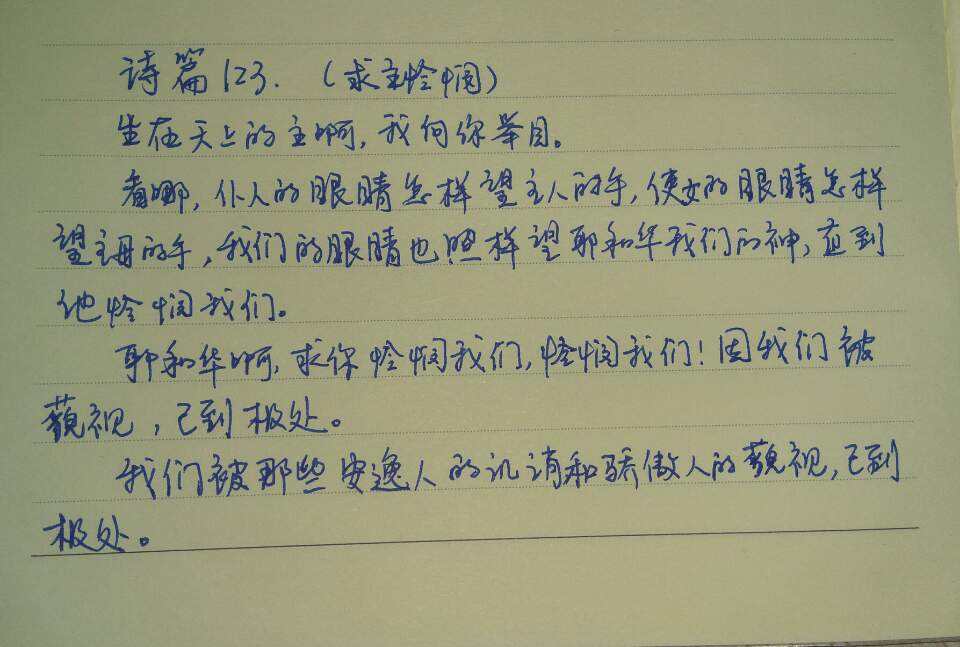 诗篇123.（求主怜悯）
坐在天上的主啊，我向你举目。
看哪，仆人的眼睛怎样望主人的手，使女的眼睛怎样
望主母的手，我们的眼睛也照样望耶和华我们的神，直到
他怜悯我们。
耶和华啊，求你怜悯我们，怜悯我们！因我们被
藐视，已到极处。
我们被那些安逸人的讥诮和骄傲人的藐视，已到
极处。